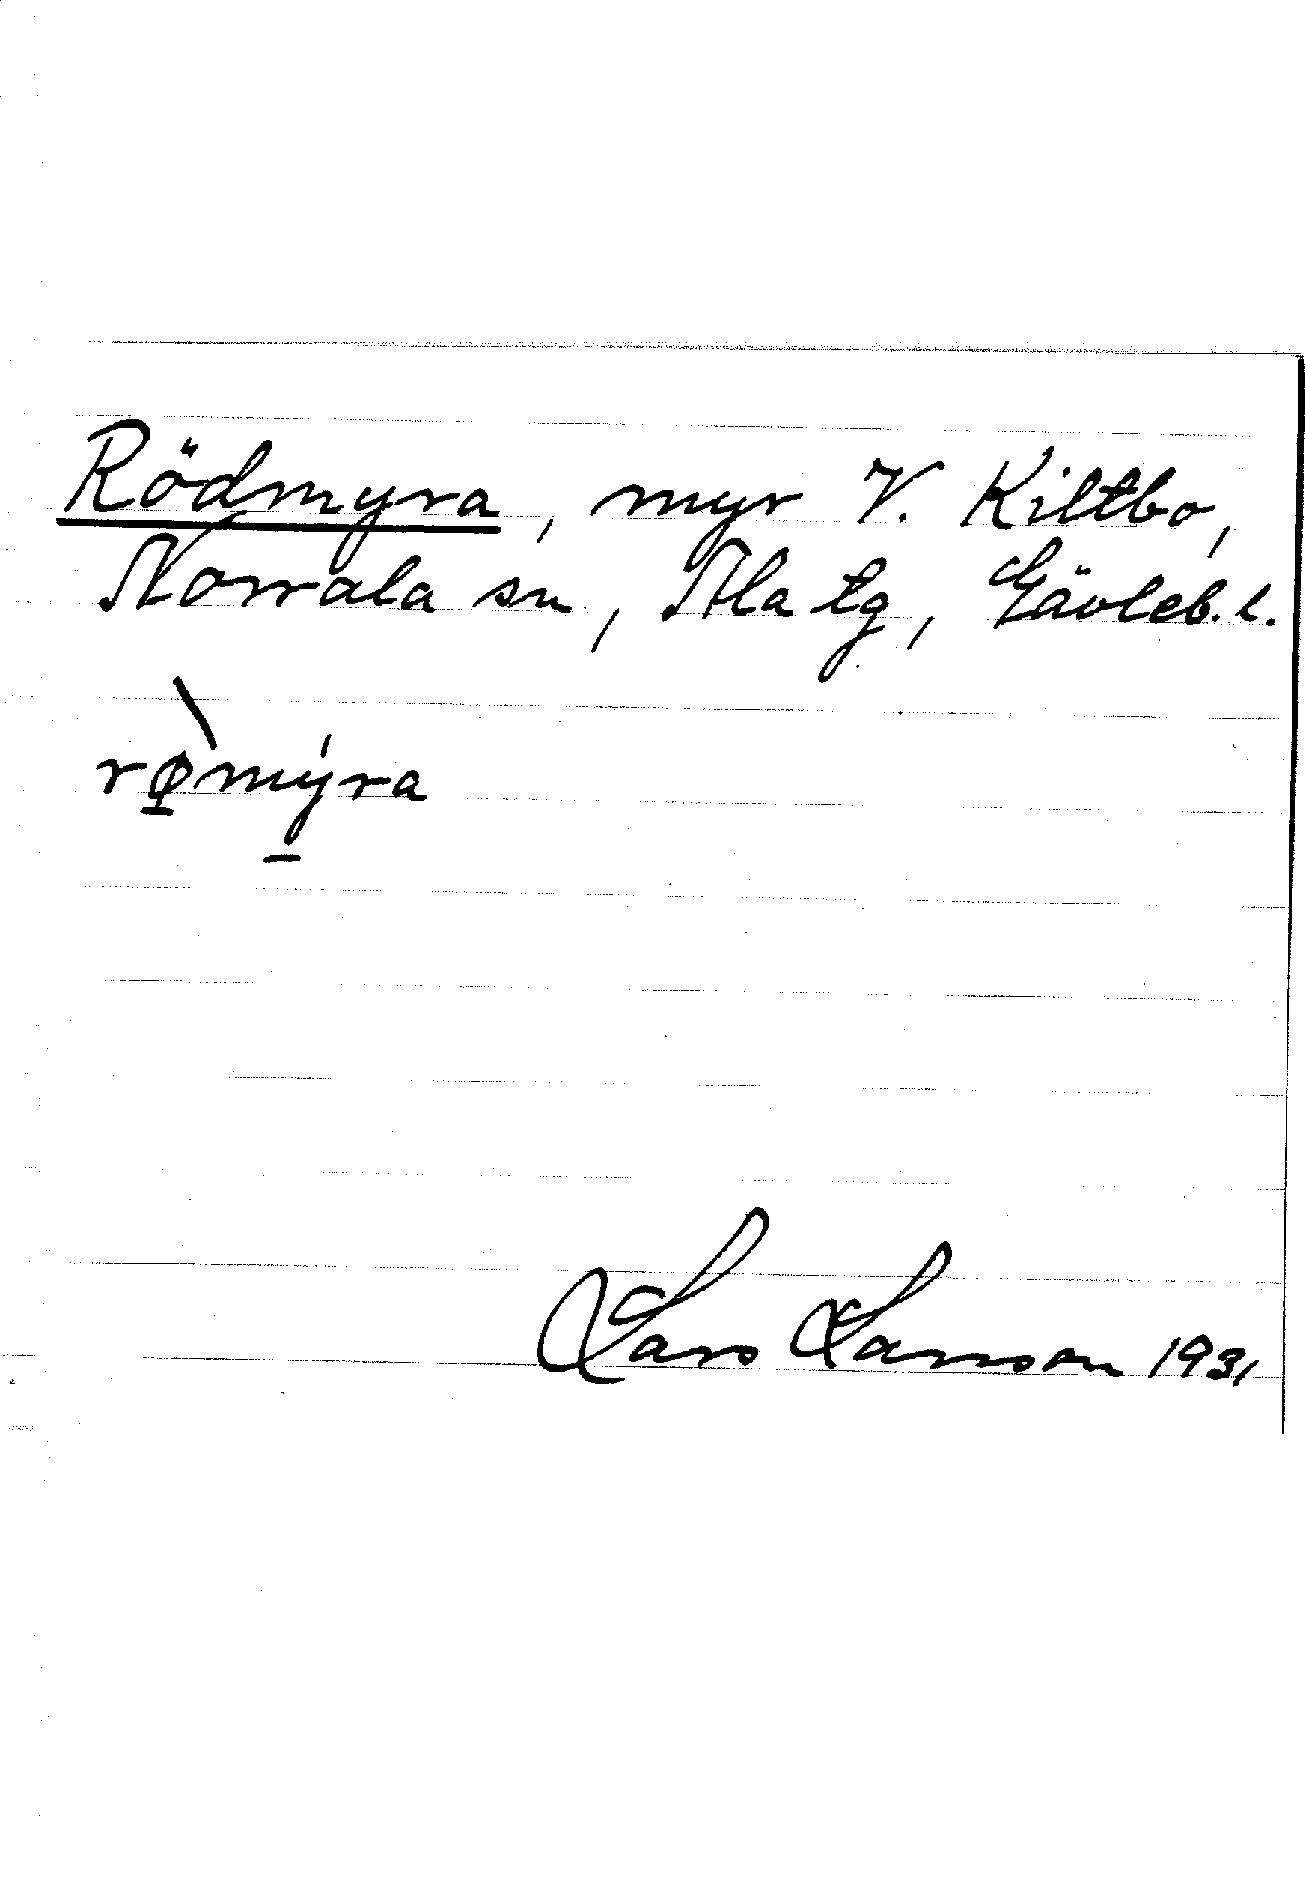 Rödmyra, myr V. Kiltbo,
Norrala sn, Ala tg, Gävleb. l.
rø̱̀mý̱ra
Lars Larsson 1931